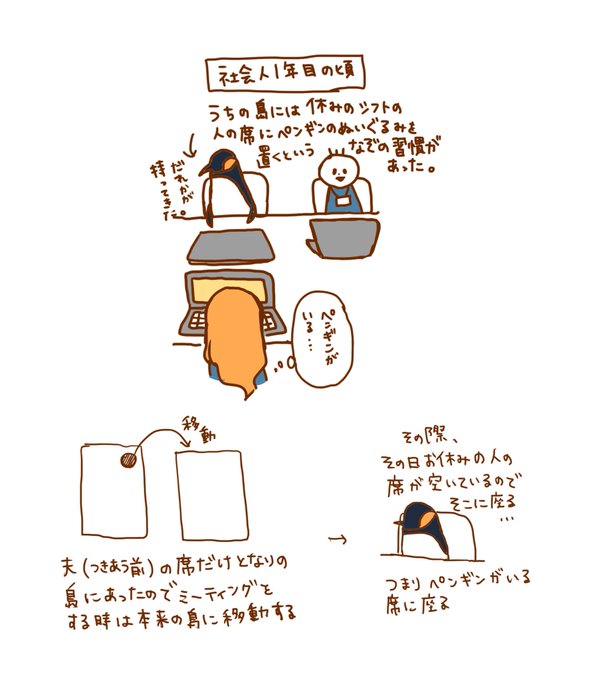 社会人1年目の頃
うちの島には休みのシフトの
人の席にペンギンのぬいぐるみを
置くという なぞの習慣が
あった。
だれかが
持ってきた。
ペンギンが
いる…
移動
夫(つきあう前)の席だけとなりの
島にあったのでミーティングを
する時は本来の島に移動する
→
その際、
その日お休みの人の
席が空いているので
そこに座る
…
つまりペンギンがいる
席に座る